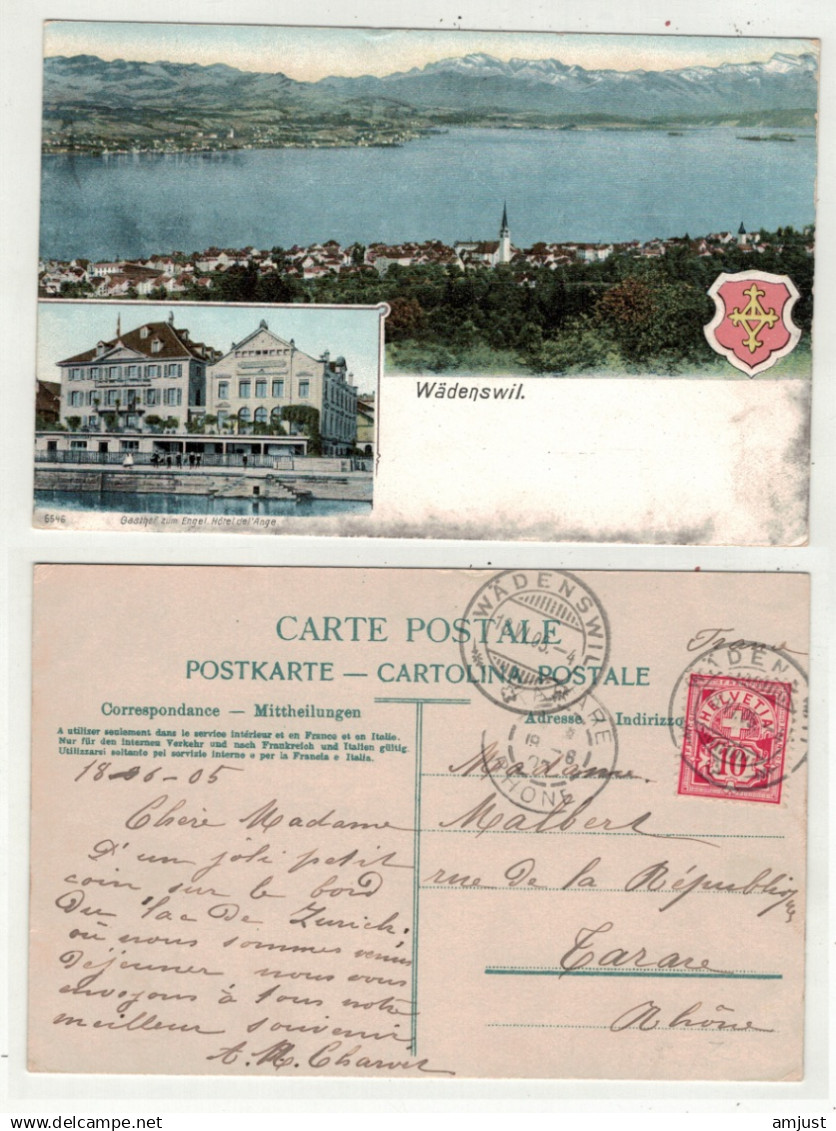 Wädenswil.
6646
Gasthof zum Engel. Hôtel de l'Ange.
CARTE POSTALE
POSTKARTE — CARTOLINA POSTALE
Correspondance — Mittheilungen
A utiliser seulement dans le service intérieur et en France et en Italie.
Nur für den internen Verkehr und nach Frankreich und Italien gültig.
Utilizzarsi soltanto pei servizio interne e per la Francia e Italia.
18-06-05
Chère Madame
D'un joli petit
coin sur le bord
du lac de Zurich.
où nous sommes venus
déjeuner nous vous
envoyons à tous notre
meilleur souvenir
A. M. Charvet
WÄDENSWIL
TARARE
RHONE
Adresse Indirizzo
France
WÄDENSWIL
HELVETIA
10
Madame
Malbert
rue de la République
Tarare
Rhône
amjust
delcampe.net